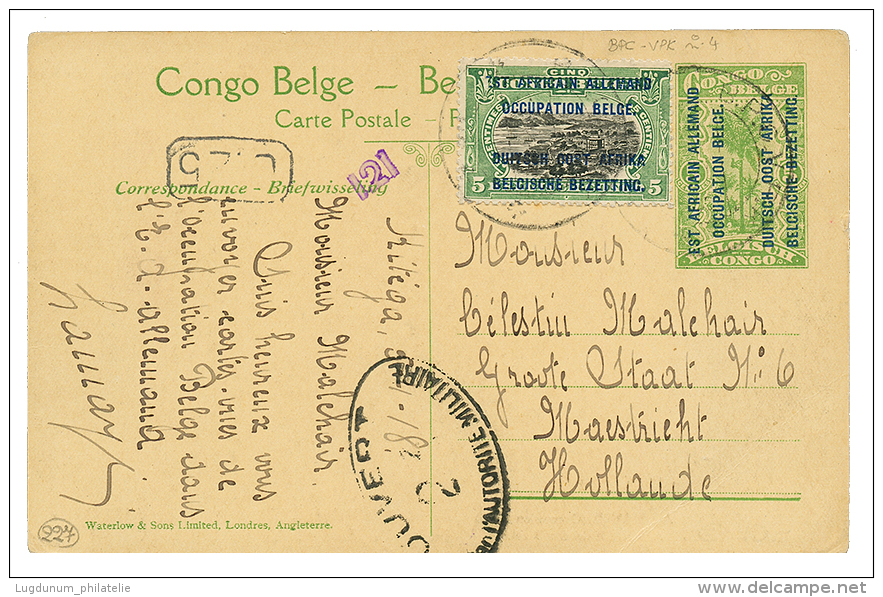 BPC - VPK n: 4
Congo Belge – Be
Carte Postale – 
Correspondance - Briefwisseling
121
5
CINQ
EST AFRICAIN ALLEMAND
OCCUPATION BELGE.
DUITSCH OOST AFRIKA
BELGISCHE BEZETTING.
5 5
CONGO
BELGE
EST AFRICAIN ALLEMAND
OCCUPATION BELGE.
DUITSCH OOST AFRIKA
BELGISCHE BEZETTING.
BELGISCH
CONGO
Kitéga,
Monsieur Malchair.
Suis heureux vous
envoyer cartes-vues de
l'occupation Belge dans
l'E. A. allemand.
Monsieur
Célestin Malchair
Groote Staat No: 6
Maestricht
Hollande
OUVERT
AUTORITE MILITAIRE
2
Waterlow & Sons Limited, Londres, Angleterre.
227
Lugdunum_philatelie
www.delcampe.net